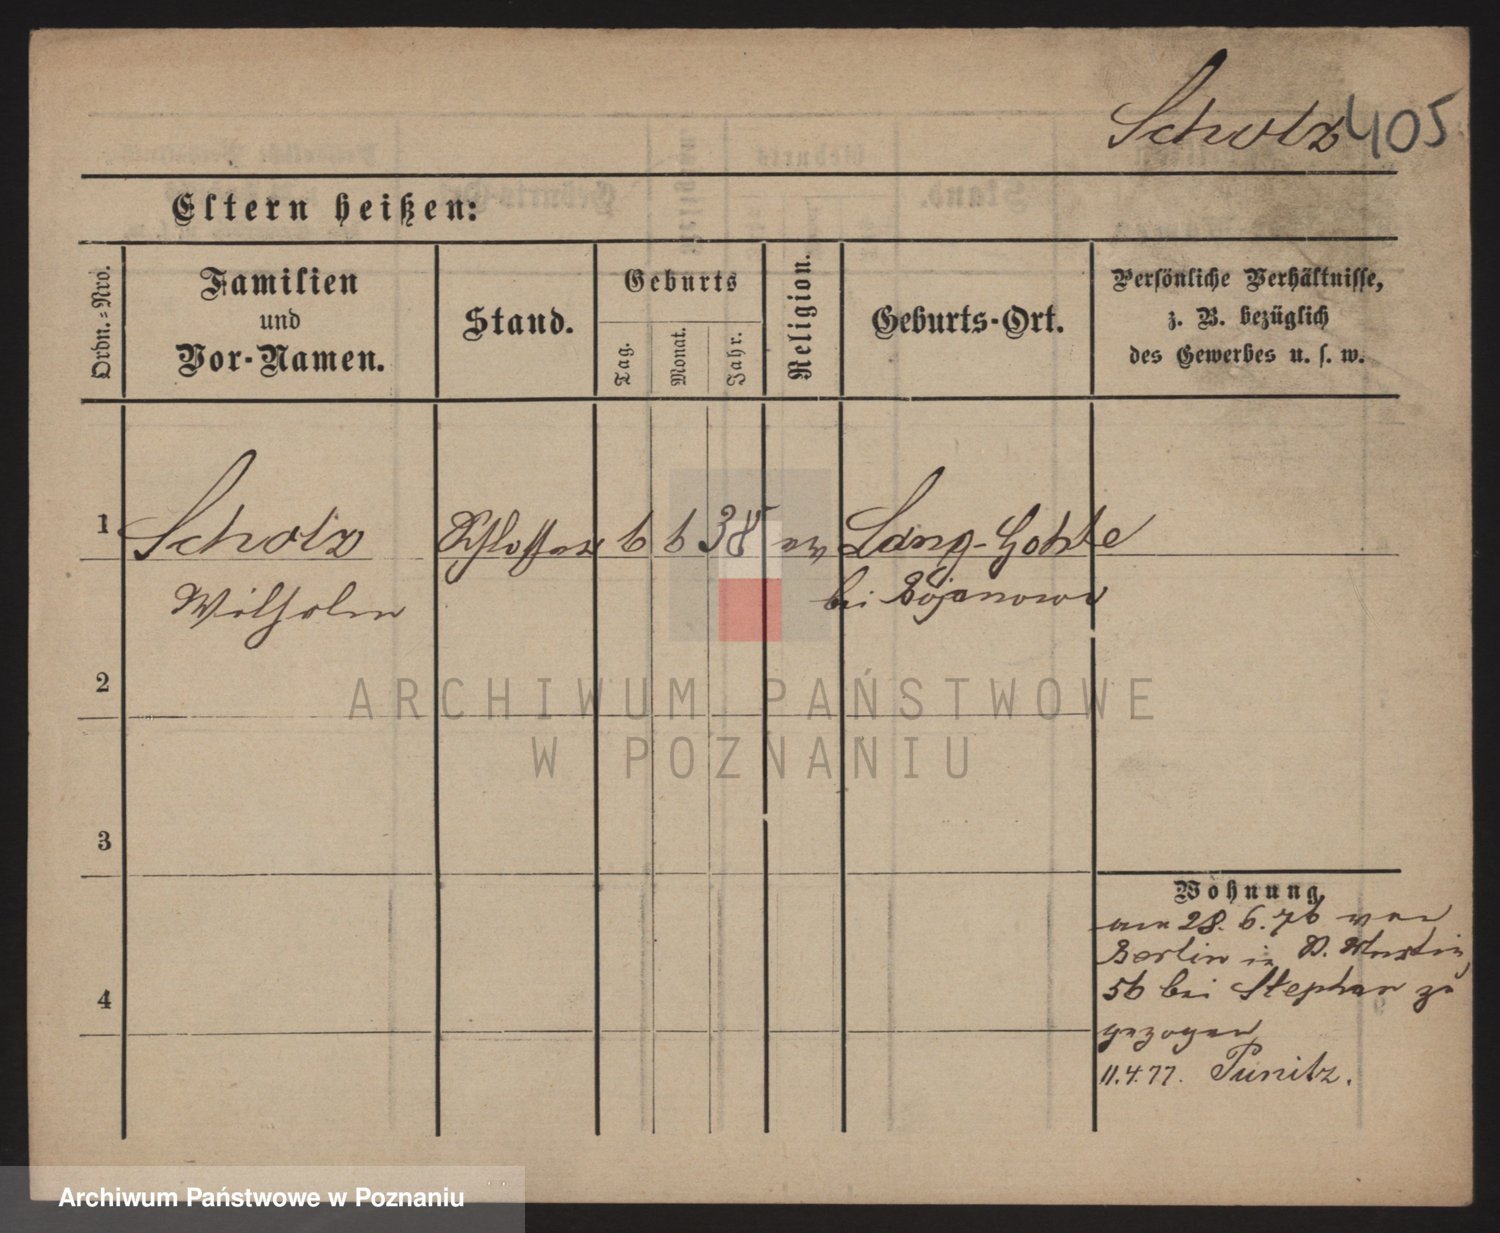 Scholz 405
Eltern heißen:
Ordn.=Nro.
Familien
und
Vor-Namen.
Stand.
Geburts
Tag.
Monat.
Jahr.
Religion.
Geburts-Ort.
Persönliche Verhältnisse,
z. B. bezüglich
des Gewerbes u. s. w.
1 Scholz Schlosser 6 6 38 ev Lang-Gohle
Wilhelm bei Bojanowo
2
ARCHIWUM PAŃSTWOWE
W POZNANIU
3
Wohnung
am 28. 6. 76 von
Berlin in
56 bei Stephan zu
gezogen
4
11.4.77. Punitz.
Archiwum Państwowe w Poznaniu